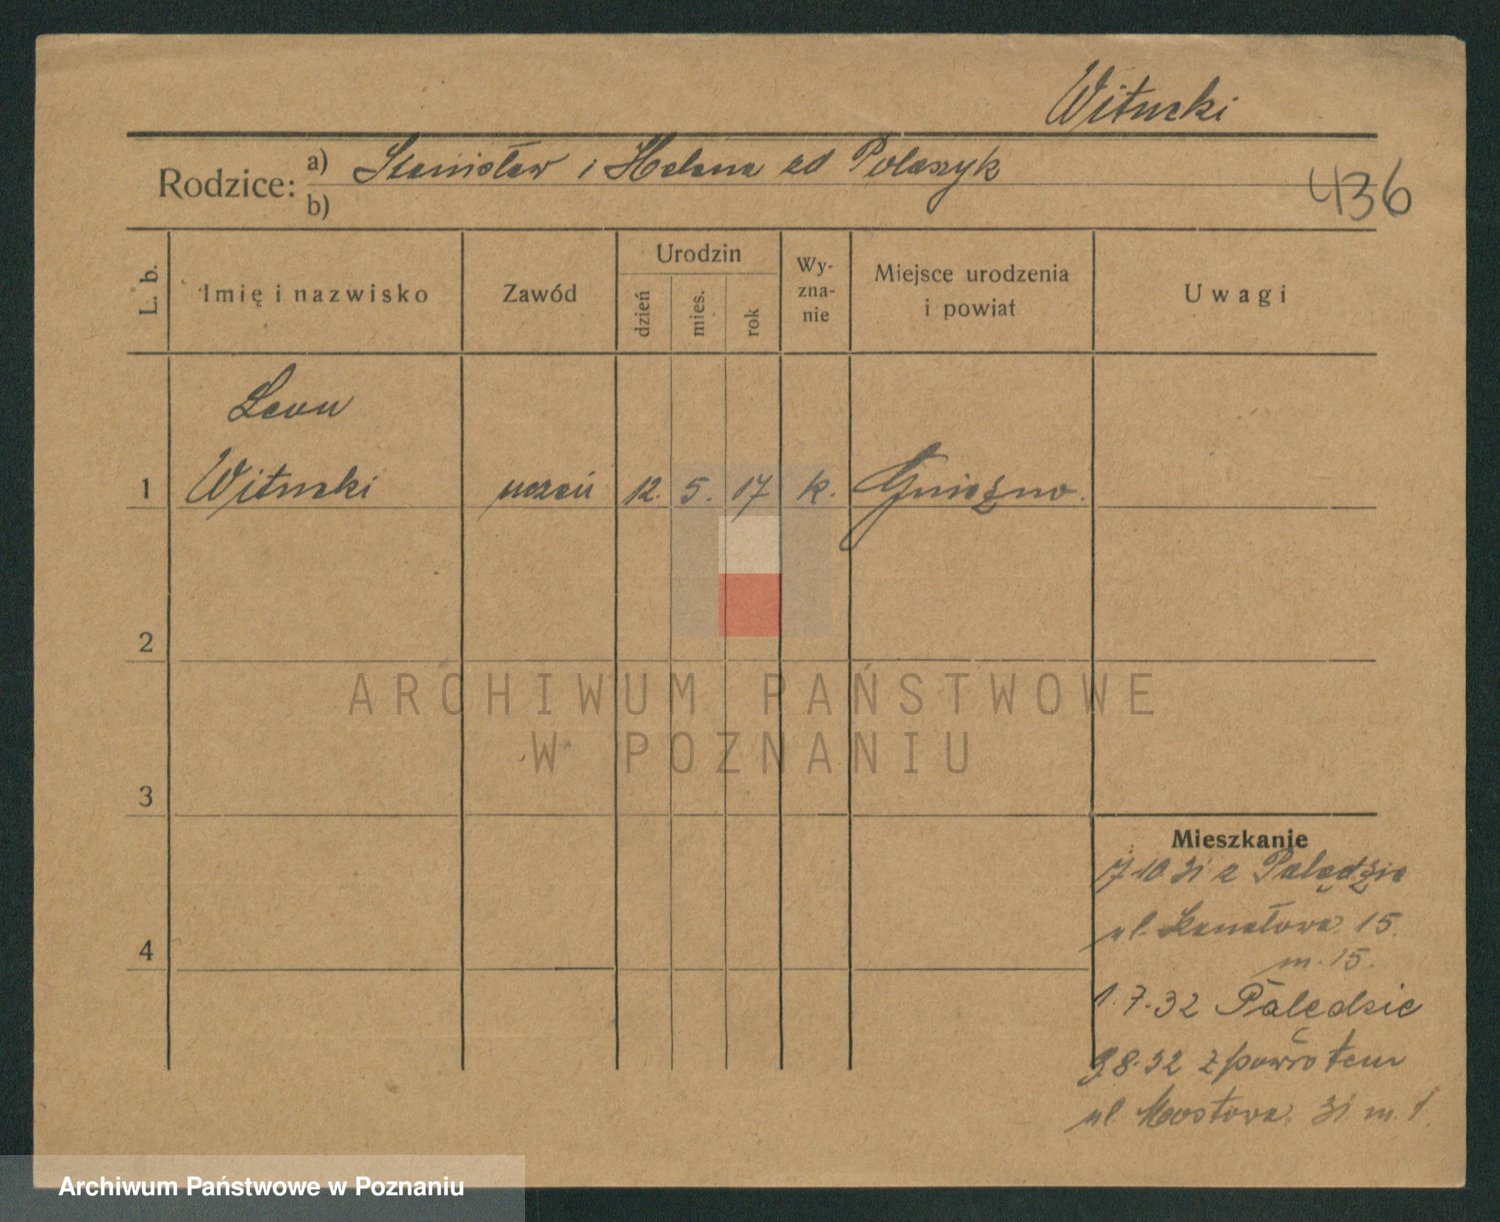 Witucki
Rodzice: a) Stanisław i Helena zd Polaszyk
b)
436
L. b.
Imię i nazwisko
Zawód
Urodzin
dzień
mies.
rok
Wy-
zna-
nie
Miejsce urodzenia
i powiat
Uwagi
Leon
1 Witucki uczeń 12. 5. 17 k. Gniezno.
2
ARCHIWUM PAŃSTWOWE
W POZNANIU
3
Mieszkanie
17.10.31 z Palędzie
ul. Kanałowa 15.
m. 15.
4
1.7.32 Palędzie
9.8.32 z powrotem
ul. Mostowa 31 m. 1.
Archiwum Państwowe w Poznaniu